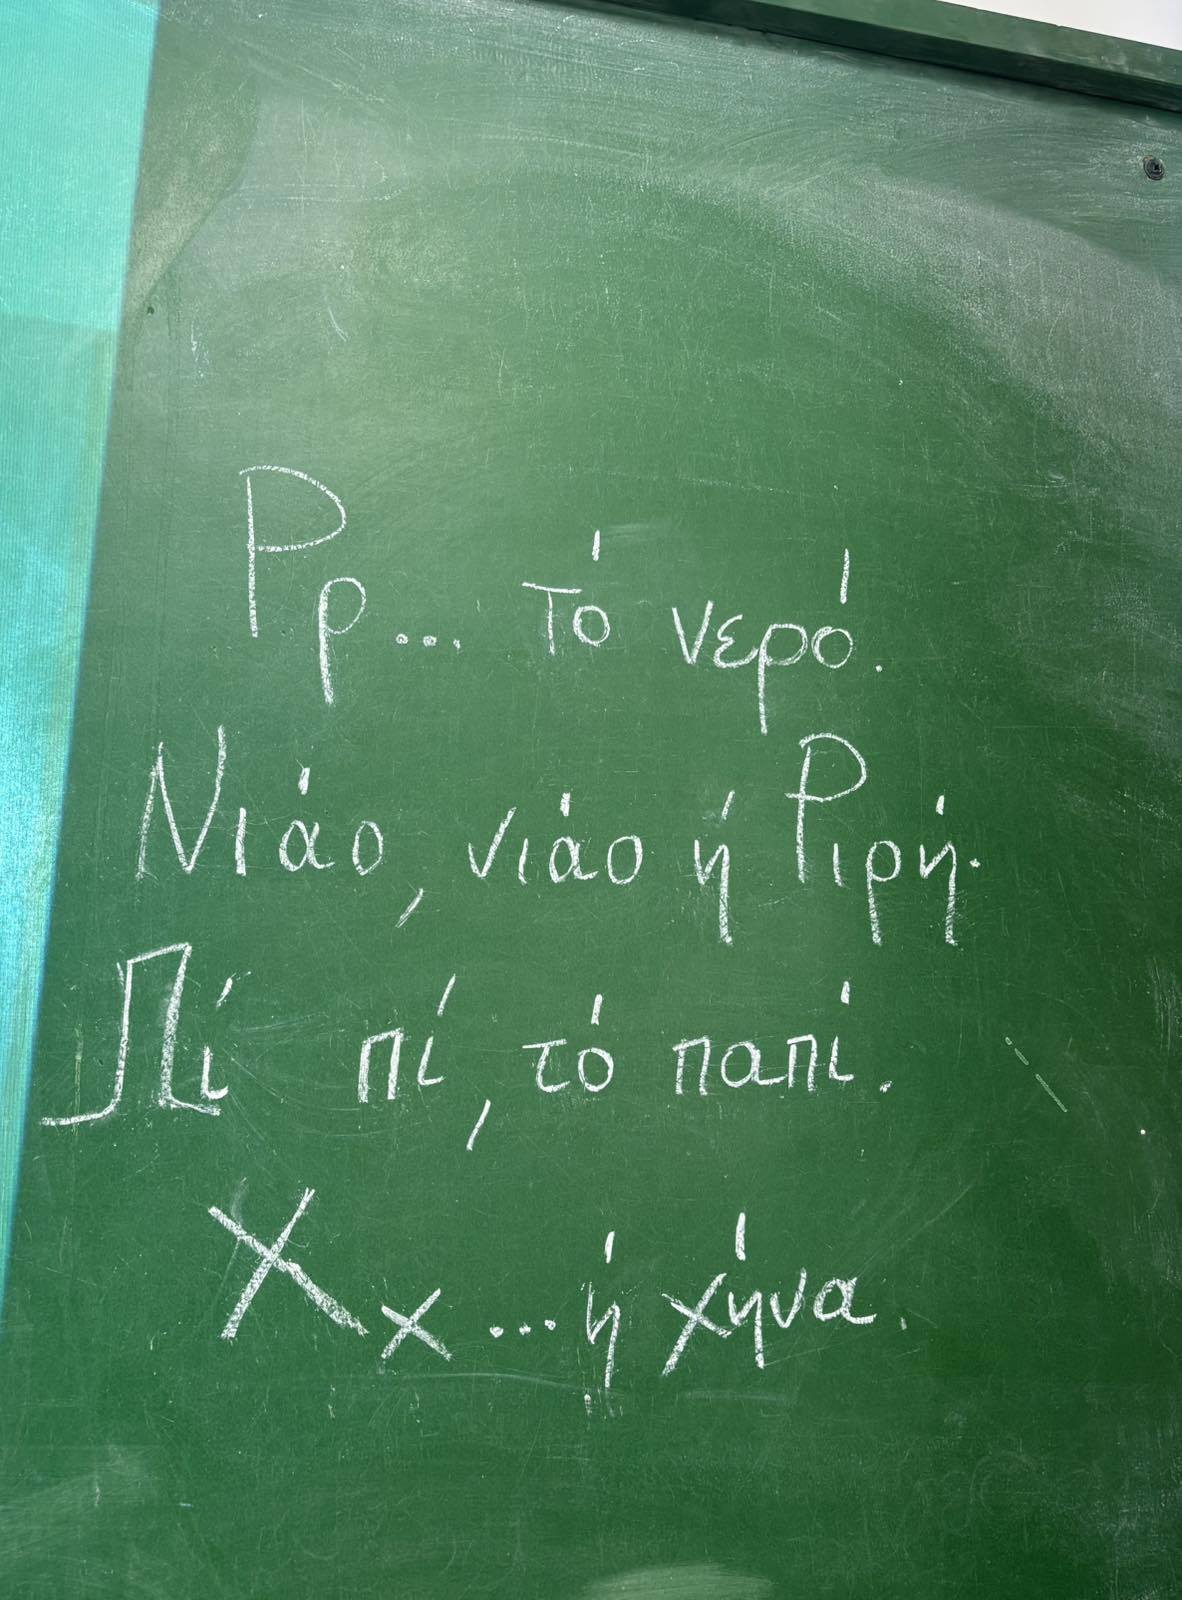 Ρρ... τό νερό.
Νιάο, νιάο ή Ριρή.
Πί πί, τό παπί.
Χχ... ή χήνα.